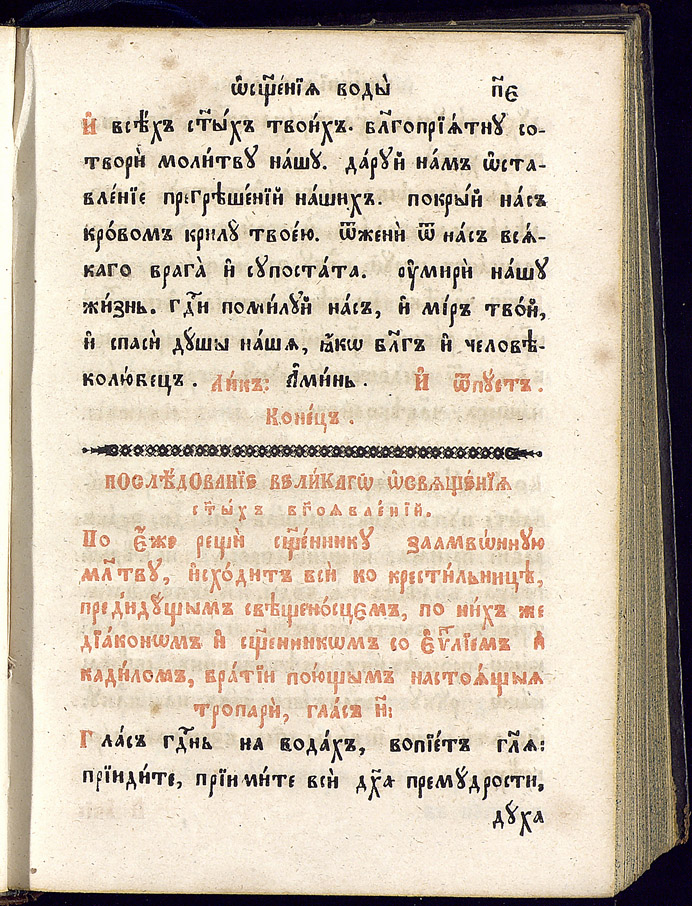 ѡ҆сщ҃е́нїѧ воды̀ п҃є
И҆ всѣ́хъ ст҃ы́хъ твои́хъ. бл҃гопрїѧ́тну со-
творѝ моли́тву на́шу. да́рꙋй на́мъ ѡ҆ста-
вле́нїе прегрѣше́нїй на́шихъ. покры́й на́съ
кро́вомъ крилꙋ̀ твоє́ю. ѿженѝ ѿ на́съ всѧ́-
каго врага̀ и҆ сꙋпоста́та. ᲂу҆мирѝ на́шꙋ
жи́знь. гдⷭ҇и поми́лꙋй на́съ, и҆ мі́ръ тво́й,
и҆ спасѝ дꙋ́шы на́шѧ, ꙗ҆́кѡ бл҃гъ и҆ человѣ-
колю́бецъ. Ли́къ: А҆ми́нь. И҆ ѿпꙋ́стъ.
Коне́цъ.
ПОСЛѢ́ДОВАНЇЕ ВЕЛИ́КАГѠ Ѡ҆СВѦЩЕ́НЇѦ
ст҃ы́хъ бг҃оѧвле́нїй.
По є҆́же рещѝ сщ҃е́нникꙋ заамвѡ́ннꙋю
мл҃твꙋ, и҆схо́дитъ всѝ ко крести́льницѣ,
пред̾идꙋ́щымъ свѣщено́сцемъ, по ни́хъ же
дїа́конѡмъ и҆ сщ҃е́нникѡмъ со є҆ѵⷢ҇лїемъ и҆
кади́ломъ, бра́тїи пою́щымъ настоѧ́щыѧ
тропарѝ, гла́съ и҃:
Гла́съ гдⷭ҇нь на вода́хъ, вопїе́тъ гл҃ѧ:
прїиди́те, прїими́те всѝ дх҃а премꙋ́дрости,
дꙋ́ха